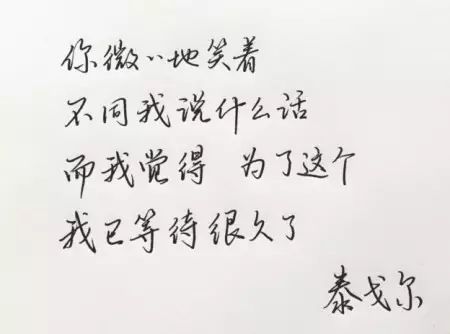 你微〃地笑着
不同我说什么话
而我觉得 为了这个
我已等待很久了
泰戈尔